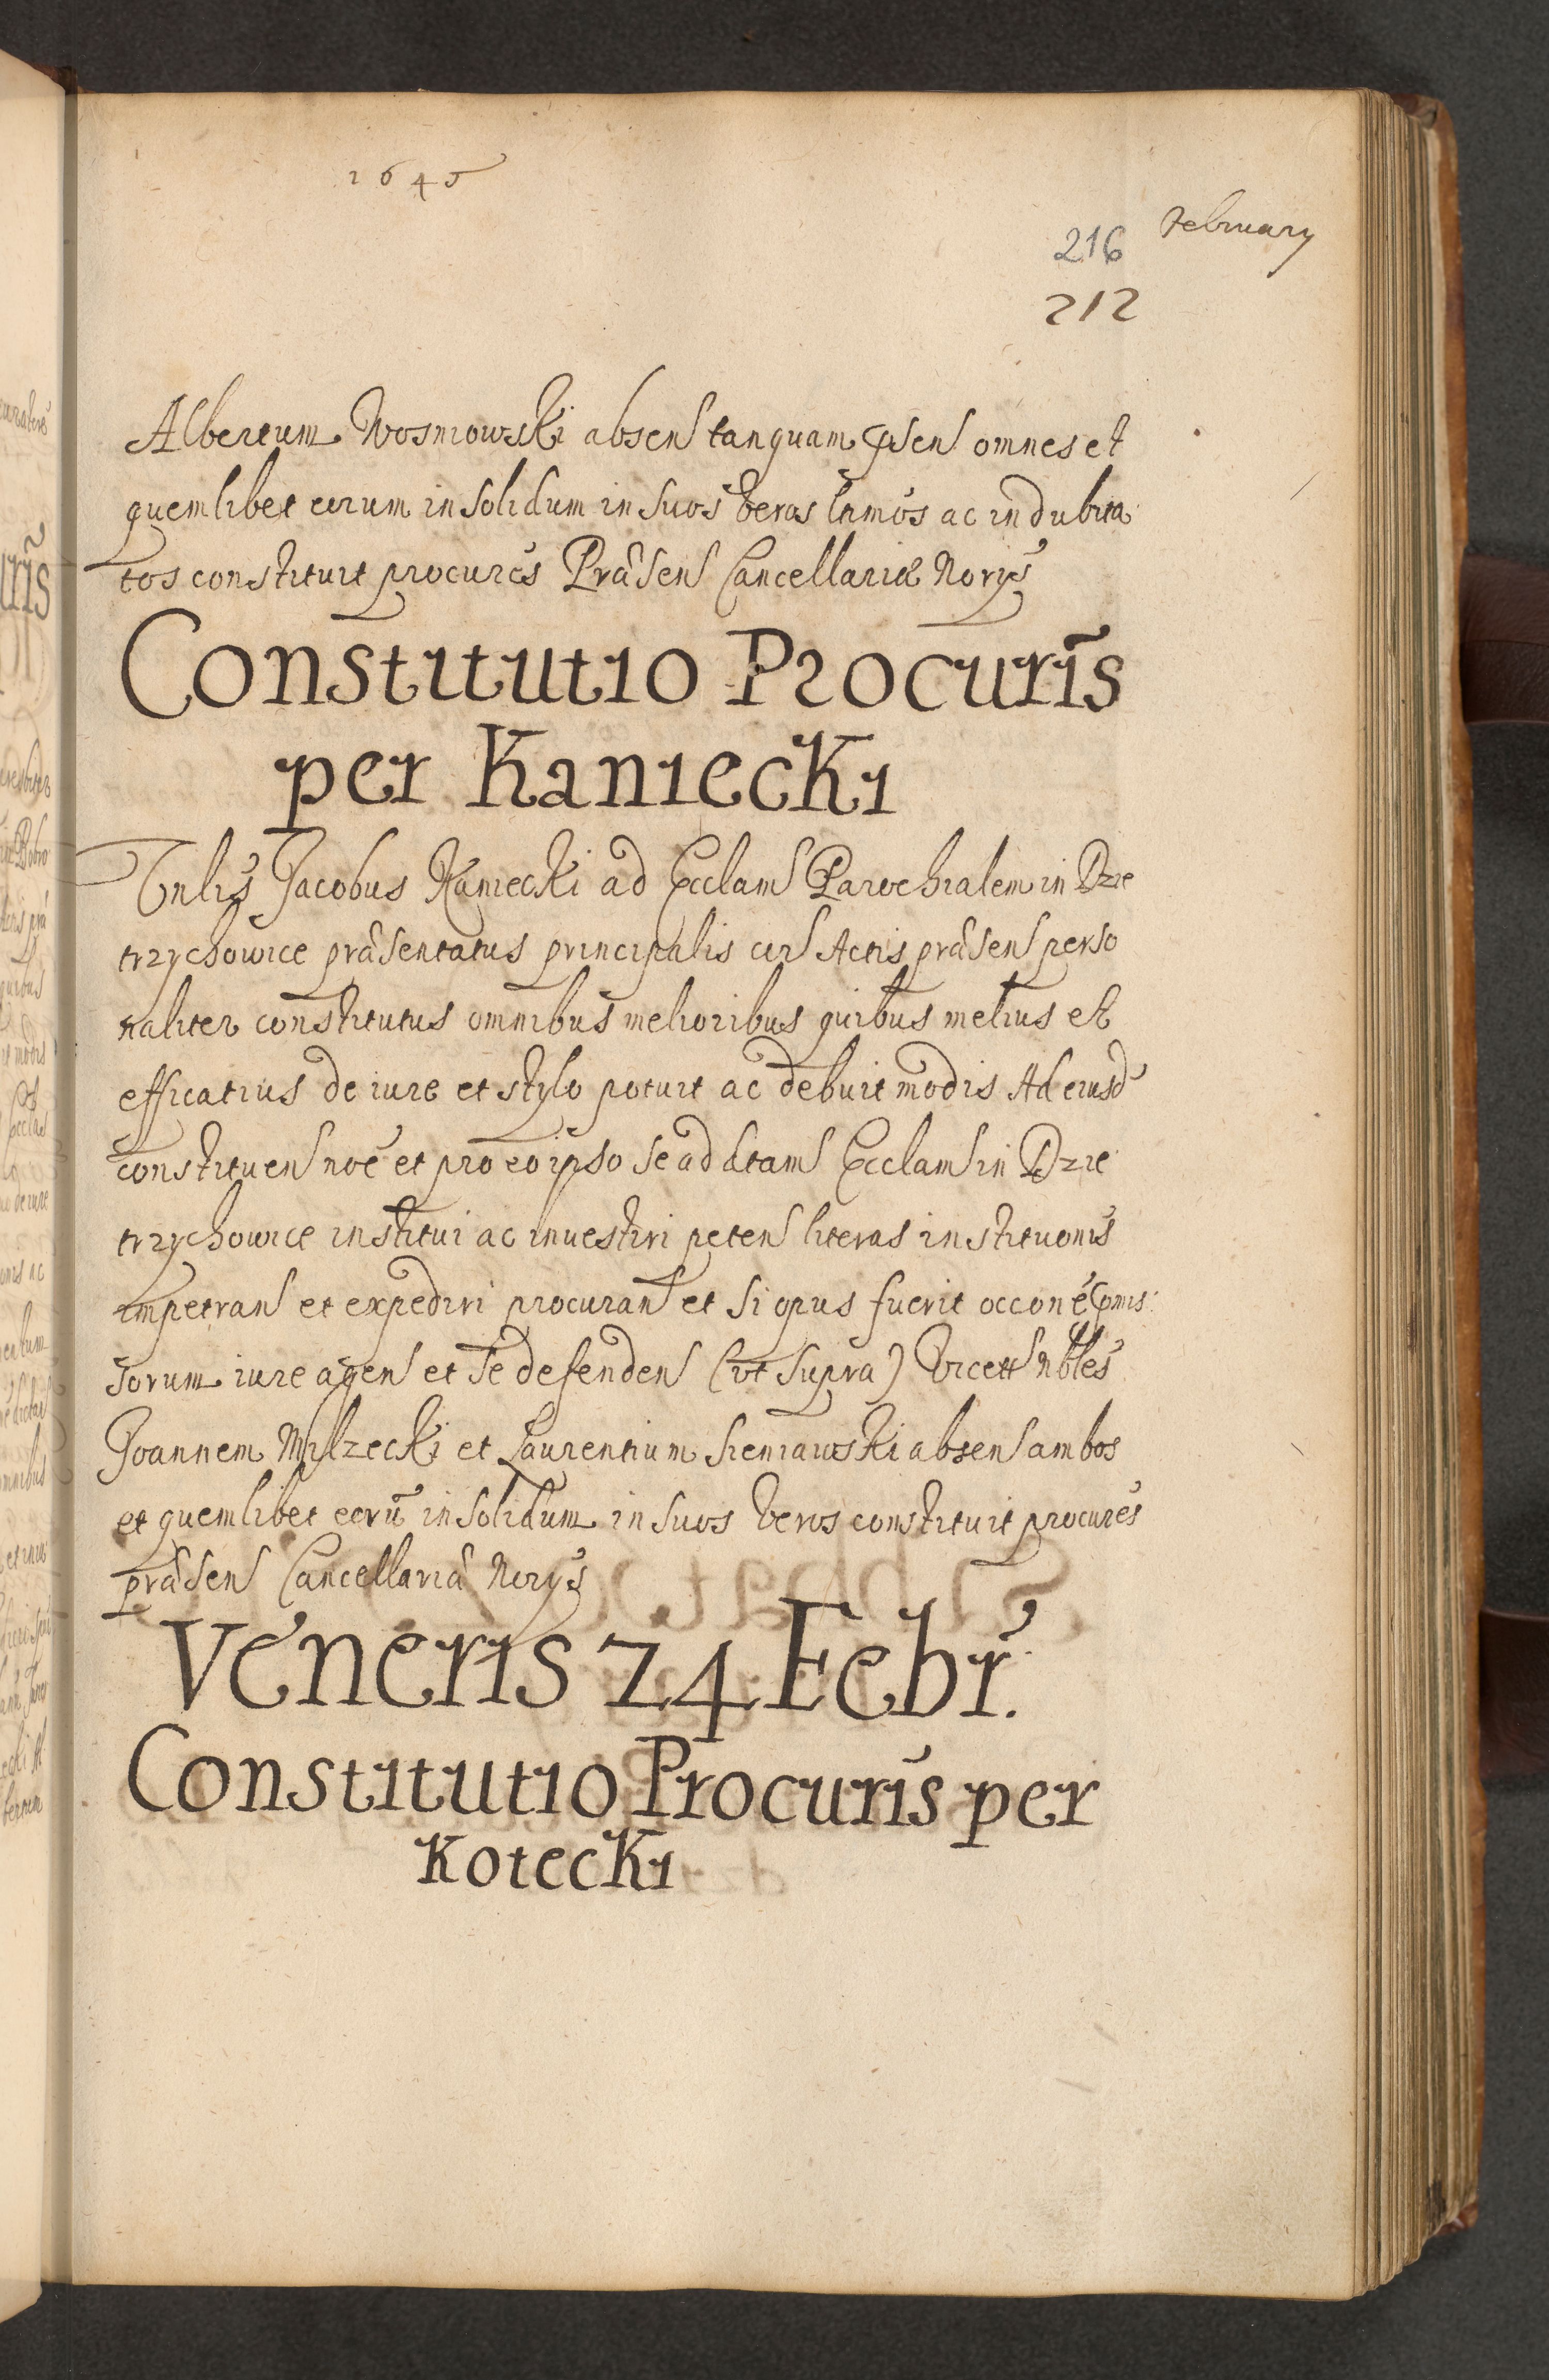 1645
February
216
212
Albertum Wosniowski absen tanquam pñsen omnes et
quemlibet eorum in solidum in suos veros lrimos ac indubita
tos constituit procures Præsen Cancellariæ Norijs
Constitutio Procuris
per Kaniecki
Vnlis Jacobus Kaniecki ad Ecclam Parochialem in Dzie
trzychowice præsentatus principalis cor Actis præsen perso
naliter constitutus omnibus melioribus quibus melius et
efficatius de iure et stylo potuit ac debuit modis Ad eiusd
constituen noe et pro eo ipso se ad dtam Ecclam in Dzie
trzychowice institui ac inuestiri peten literas institutionis
impetran et expediri procuran et si opus fuerit occone
sorum iure agen et se defenden (ut supra) Vicett nbles
Joannem Milzecki et Laurentium Sieniawski absen ambos
et quemlibet eorũ in solidum in suos veros constituit procures
præsen Cancellariæ Norijs
Veneris 24 Febr.
Constitutio Procuris per
Kotecki